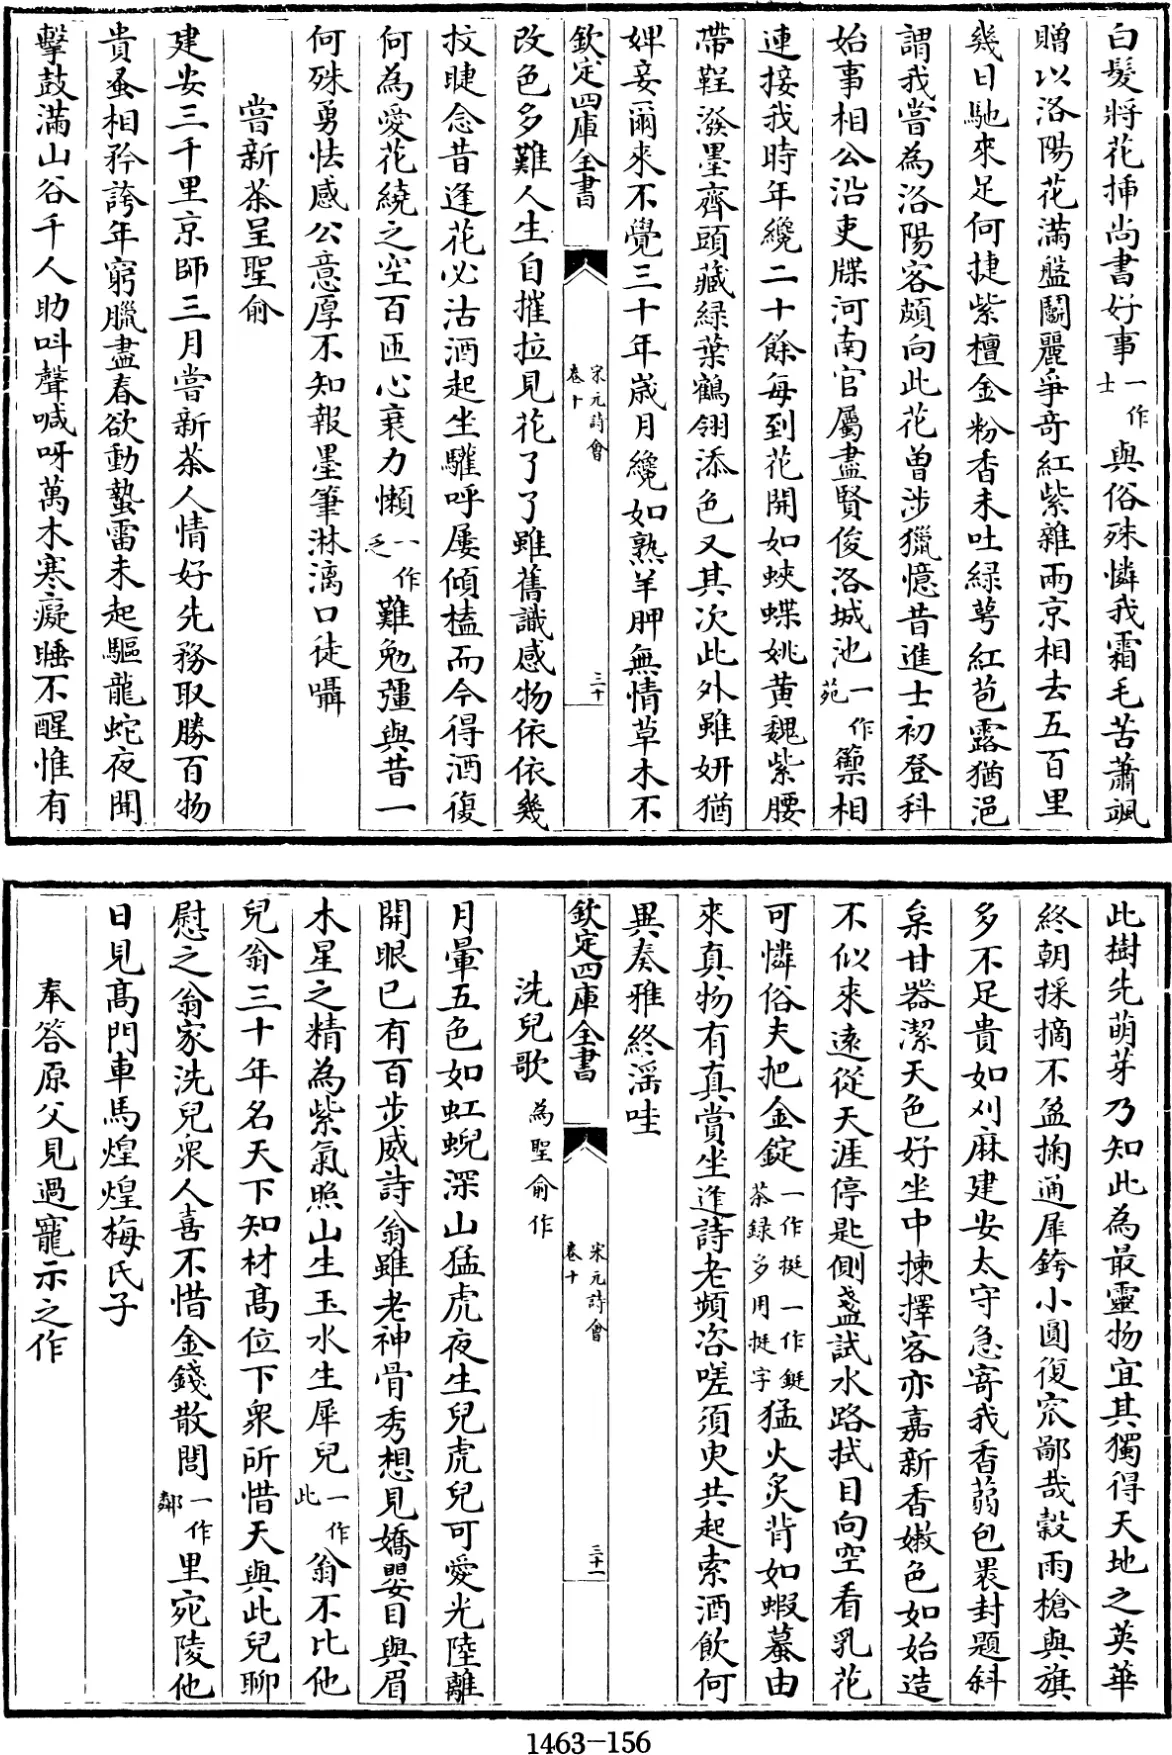 白髮將花揷尚書好事一作士與俗殊憐我霜毛苦蕭颯
贈以洛陽花滿盤鬬麗爭奇紅紫雜兩京相去五百里
幾日馳來足何捷紫檀金粉香未吐緑萼紅苞露猶浥
謂我嘗為洛陽客頗向此花曾涉獵憶昔進士初登科
始事相公沿吏牒河南官屬盡賢俊洛城池一作苑籞相
連接我時年纔二十餘每到花開如蛺蝶姚黄魏紫腰
帶鞓潑墨齊頭藏緑葉鶴翎添色又其次此外雖妍猶
婢妾爾來不覺三十年歳月纔如熟羊胛無情草木不
欽定四庫全書
宋元詩會
卷十
三十
改色多難人生自摧拉見花了了雖舊識感物依依幾
抆睫念昔逢花必沽酒起坐驩呼屢傾榼而今得酒復
何為愛花繞之空百匝心衰力懶一作乏難勉彊與昔一
何殊勇怯感公意厚不知報墨筆淋漓口徒囁
嘗新茶呈聖俞
建安三千里京師三月嘗新茶人情好先務取勝百物
貴蚤相矜誇年窮臘盡春欲動蟄雷未起驅龍蛇夜聞
擊鼓滿山谷千人助叫聲喊呀萬木寒癡睡不醒惟有
此樹先萌芽乃知此為最靈物宜其獨得天地之英華
終朝採摘不盈掬通犀銙小圓復窊鄙哉穀雨槍與旗
多不足貴如刈麻建安太守急寄我香蒻包裹封題斜
泉甘器潔天色好坐中揀擇客亦嘉新香嫩色如始造
不似來遠從天涯停匙側盞試水路拭目向空看乳花
可憐俗夫把金錠一作挺一作鋌茶録多用挺字猛火炙背如蝦蟇由
來真物有真賞坐逢詩老頻咨嗟須臾共起索酒飲何
異奏雅終淫哇
欽定四庫全書
宋元詩會
卷十
三十一
洗兒歌為聖俞作
月暈五色如虹蜺深山猛虎夜生兒虎兒可愛光陸離
開眼已有百步威詩翁雖老神骨秀想見嬌嬰目與眉
木星之精為紫氣照山生玉水生犀兒一作此翁不比他
兒翁三十年名天下知材髙位下衆所惜天與此兒聊
慰之翁家洗兒衆人喜不惜金錢散閭一作鄰里宛陵他
日見髙門車馬煌煌梅氏子
奉答原父見過寵示之作
1463—156